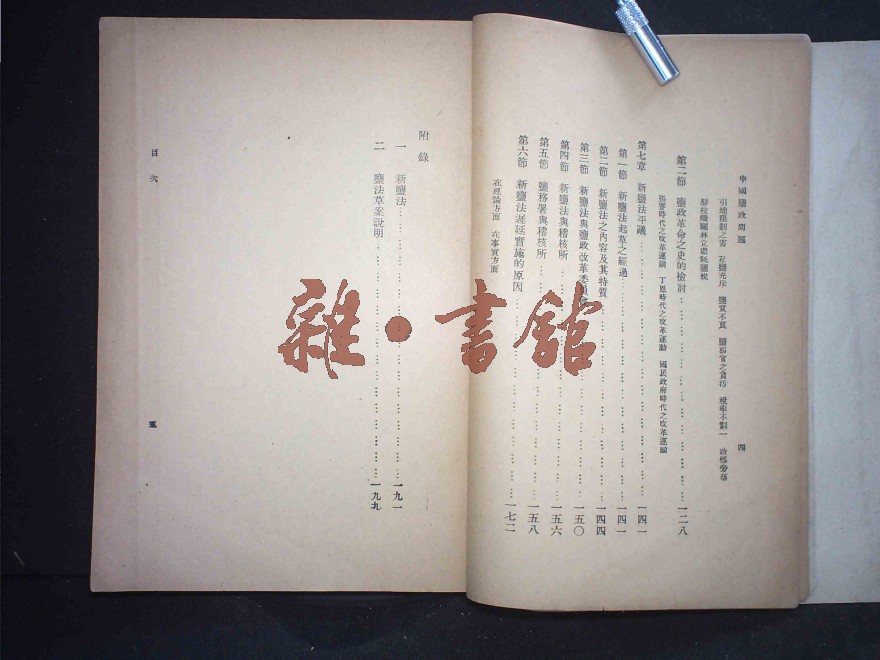 中國鹽政問題
四
引地限制之害 私鹽充斥 鹽質不真 鹽務官之貪污 稅率不劃一
駢枝機關林立虛耗鹽稅
第二節 鹽政革命之史的檢討……一二八
時代之改革運動 丁恩時代之改革運動 國民政府時代之改革運動
第七章 新鹽法平議……一四一
第一節 新鹽法起草之經過……一四一
第二節 新鹽法之內容及其特質……一四四
第三節 新鹽法與鹽政改革委員會……一五〇
第四節 新鹽法與稽核所……一五六
第五節 鹽務署與稽核所……一五八
第六節 新鹽法遲延實施的原因……一七二
在理論方面 在事實方面
附錄
一 新鹽法……一九一
二 鹽法草案說明……一九九
目次
五
雜·書館